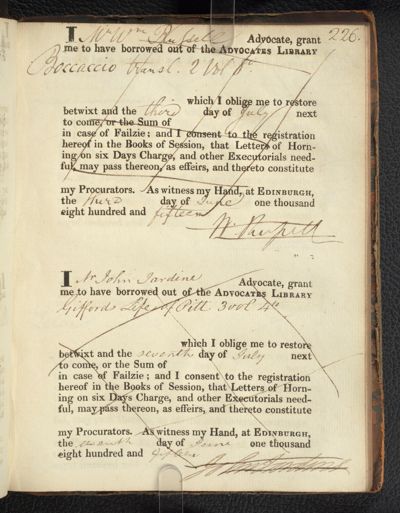 226.
I Mr Wm Russell Advocate, grant
me to have borrowed out of the ADVOCATES LIBRARY
Boccaccio transl. 2 Vol 8o
which I oblige me to restore
betwixt and the third day of July next
to come, or the Sum of
in case of Failzie; and I consent to the registration
hereof in the Books of Session, that Letters of Horn-
ing on six Days Charge, and other Executorials need-
ful, may pass thereon, as effeirs, and thereto constitute
my Procurators. As witness my Hand, at EDINBURGH,
the third day of June one thousand
eight hundred and fifteen
W.
I Mr John Jardine Advocate, grant
me to have borrowed out of the ADVOCATES LIBRARY
Giffords Life of Pitt 3 vol 4to
which I oblige me to restore
betwixt and the seventh day of July next
to come, or the Sum of
in case of Failzie; and I consent to the registration
hereof in the Books of Session, that Letters of Horn-
ing on six Days Charge, and other Executorials need-
ful, may pass thereon, as effeirs, and thereto constitute
my Procurators. As witness my Hand, at EDINBURGH,
the seventh day of June one thousand
eight hundred and fifteen